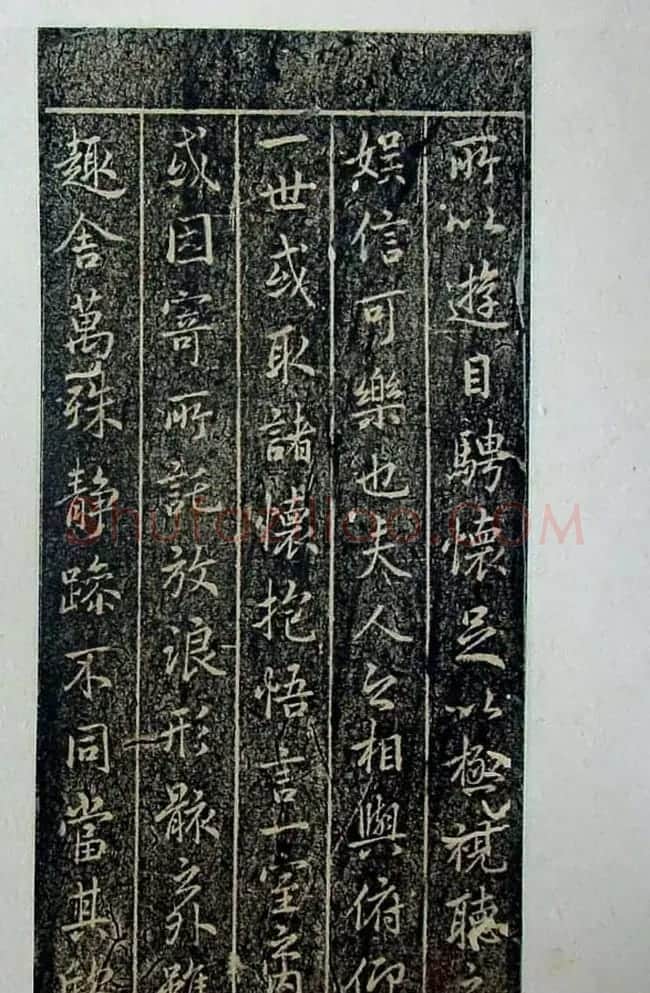 所以遊目騁懷足以極視聽之
娯信可樂也夫人之相與俯仰
一世或取諸懷抱悟言一室之內
或因寄所託放浪形骸之外雖
趣舍萬殊静躁不同當其欣
shutazi100.COM